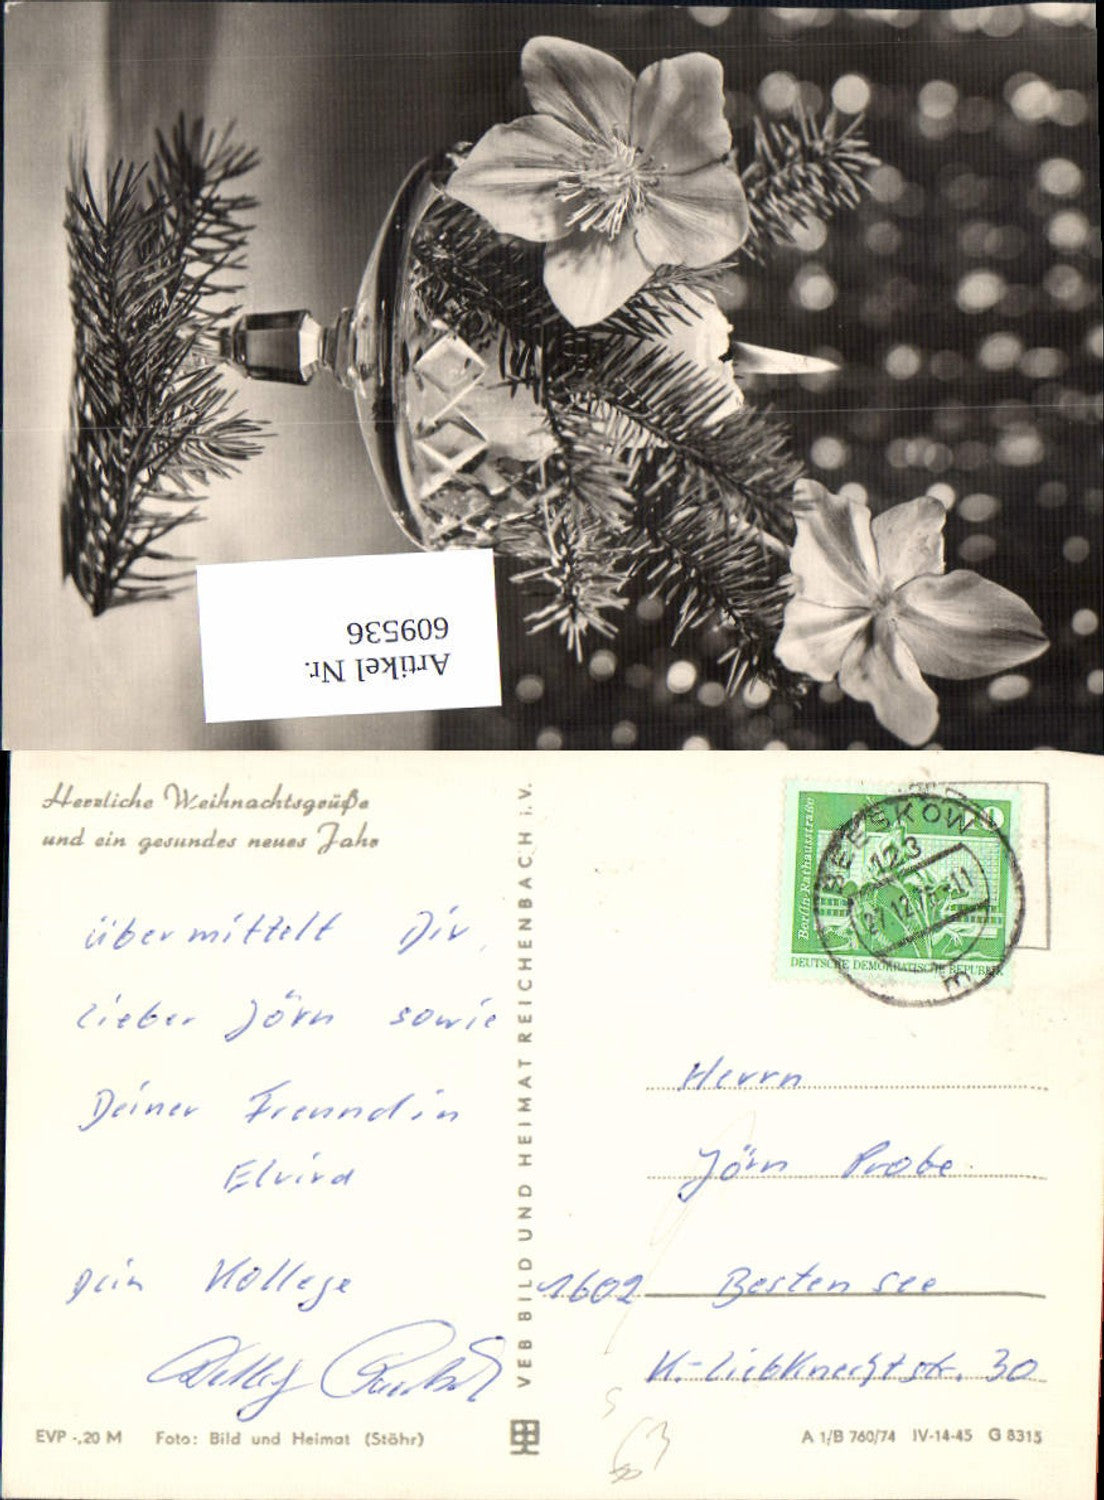 Artikel Nr.
609536
Herzliche Weihnachtsgrüße
und ein gesundes neues Jahr
übermittelt Dir,
lieber Jörn sowie
Deiner Freundin
Elvira
Dein Kollege
VEB BILD UND HEIMAT REICHENBACH i. V.
Berlin-Rathausstraße
10
DEUTSCHE DEMOKRATISCHE REPUBLIK
BEESKOW
123
27.12.
-11
Herrn
Jörn Probe
1602 Bestensee
K.-Liebknechtstr. 30
EVP -,20 M Foto: Bild und Heimat (Stöhr)
A 1/B 760/74 IV-14-45 G 8315
63